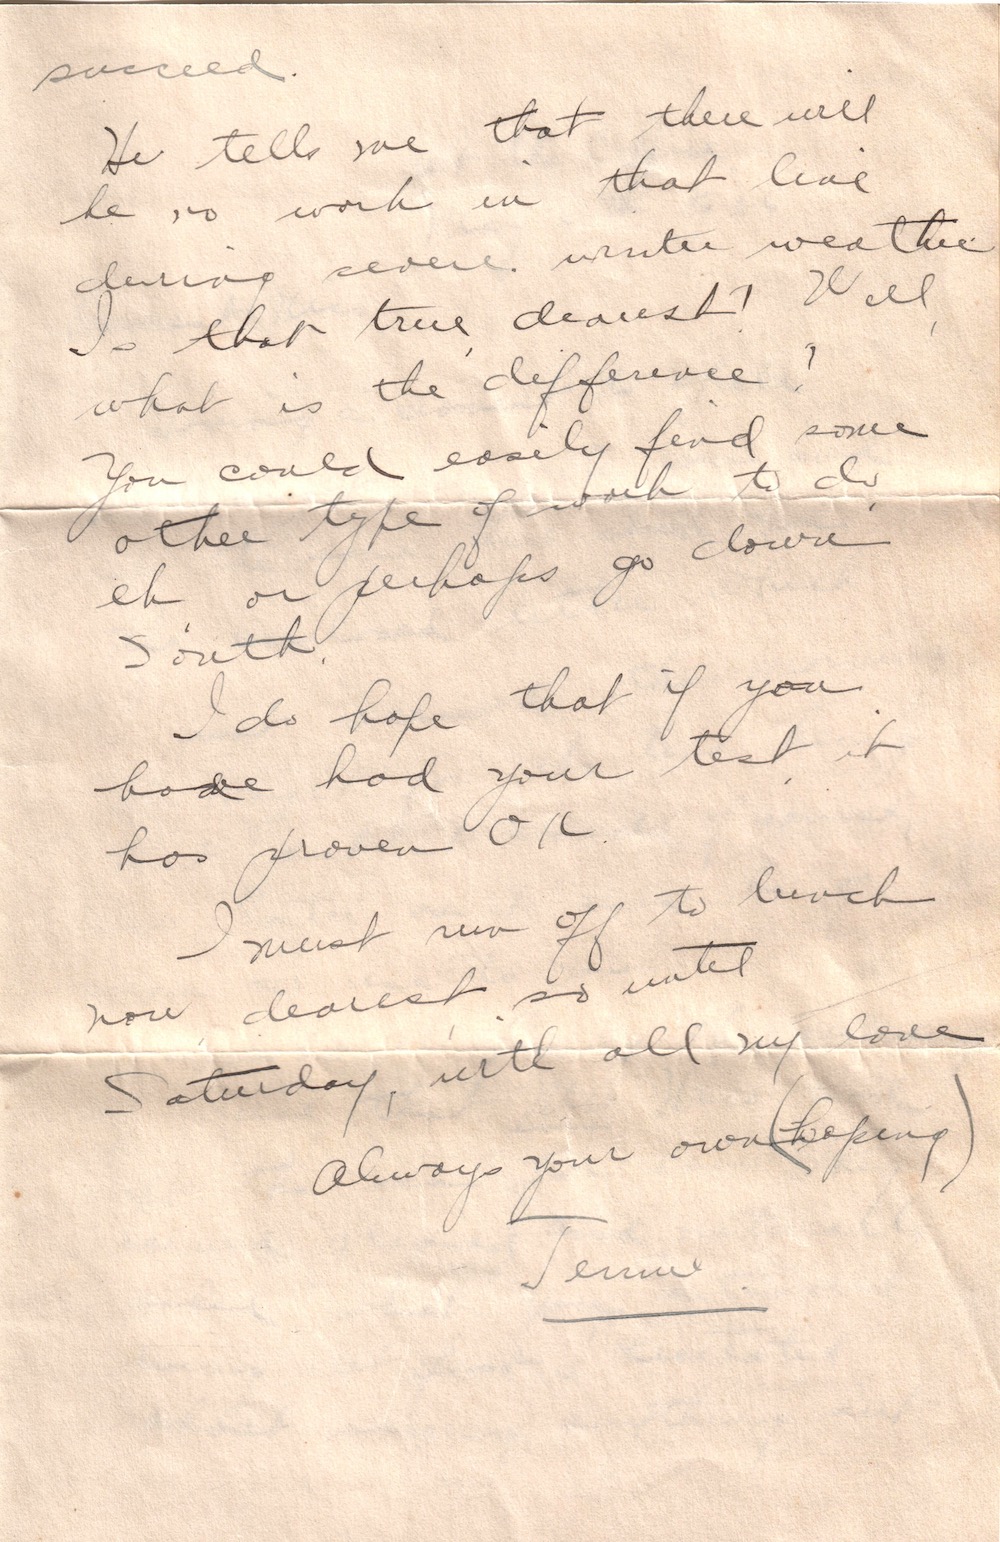 succeed.
He tells me that there will
be no work in that line
during severe winter weather
Is that true, dearest? Well,
what is the difference?
You could easily find some
other type of work to do,
eh or perhaps go down
South.
I do hope that if you
have had your test, it
has proven OK.
I must run off to lunch
now, dearest, so until
Saturday, with all my love
Always your own (hoping)
Jennie